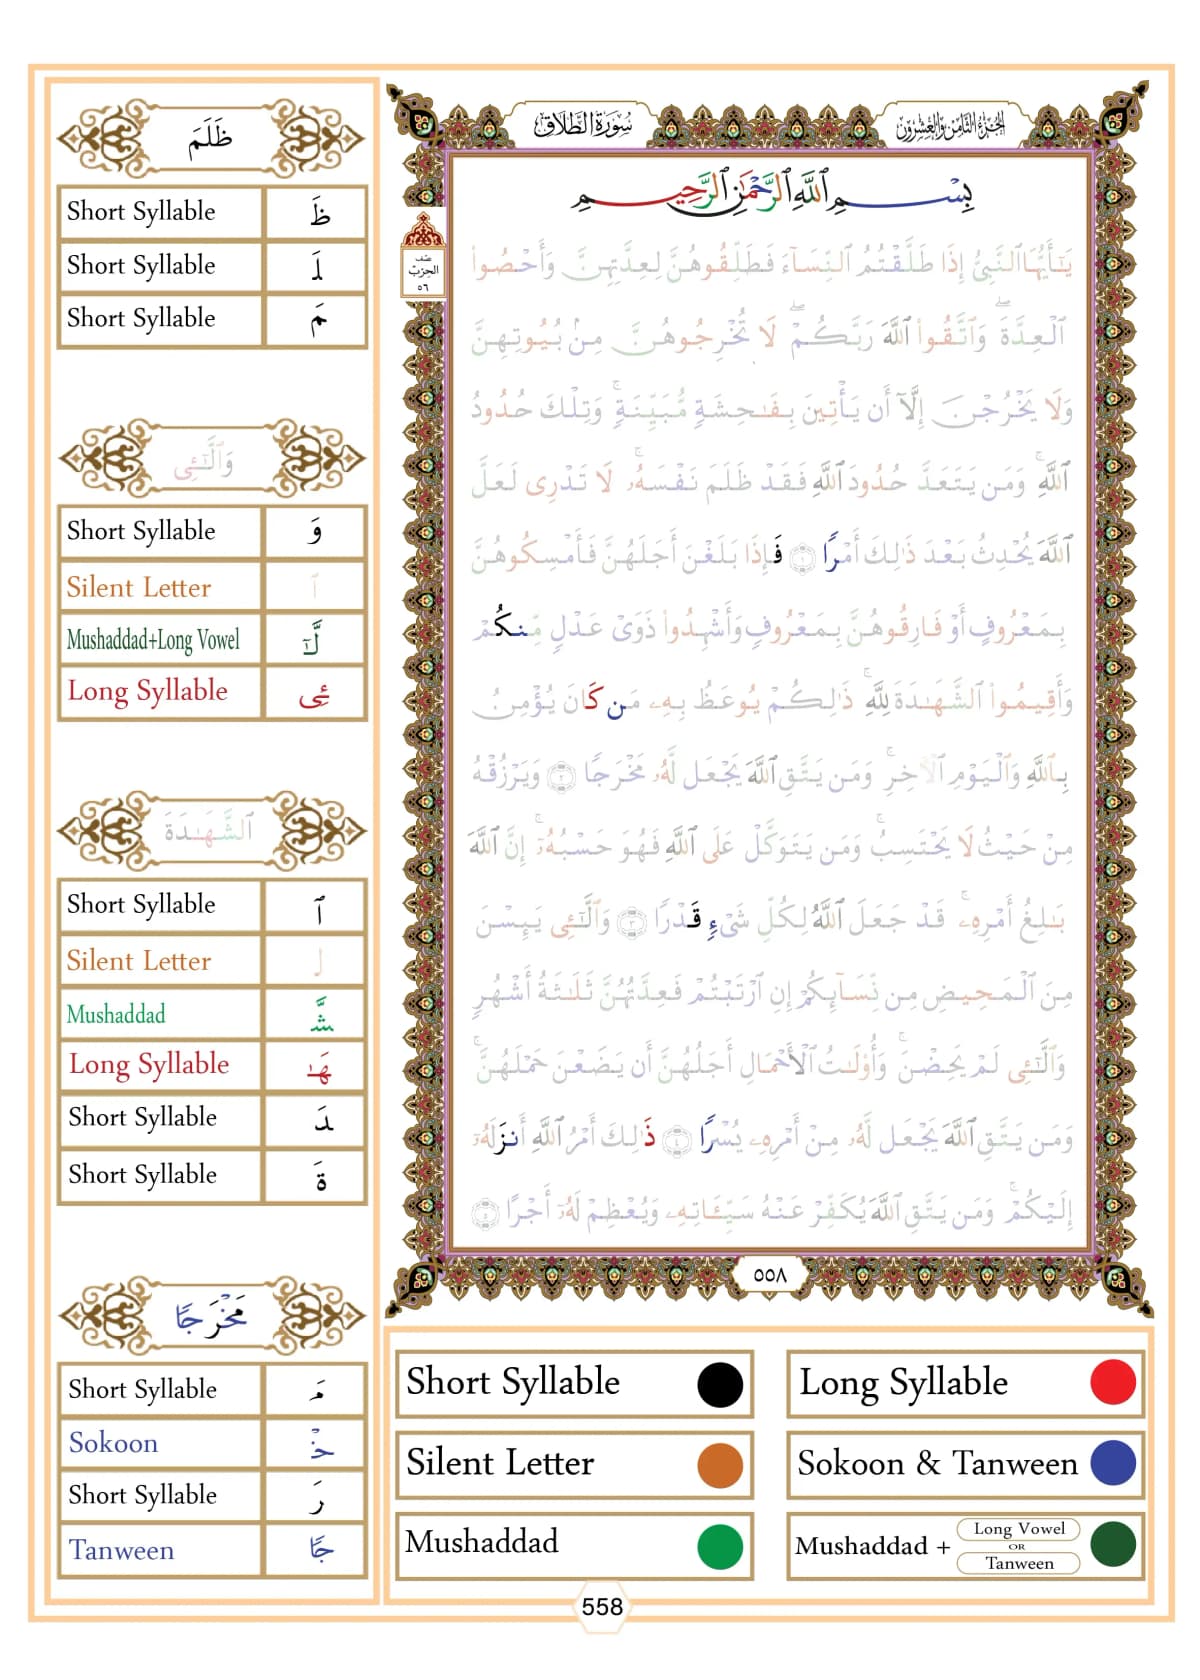 سُورَةُ الطَّلَاقِ
الجُزْءُ الثَّامِنُ وَالعِشْرُونَ
ظَلَمَ
Short Syllable ظَ
Short Syllable لَ
Short Syllable مَ
وَٱلَّـٰٓـِٔى
Short Syllable وَ
Silent Letter ٱ
Mushaddad+Long Vowel لَّـٰٓ
Long Syllable ـِٔى
ٱلشَّهَـٰدَةَ
Short Syllable ٱ
Silent Letter ل
Mushaddad شَّ
Long Syllable هَـٰ
Short Syllable دَ
Short Syllable ةَ
مَخْرَجًا
Short Syllable مَ
Sokoon خْ
Short Syllable رَ
Tanween جًا
نصف
الحزب
٥٦
بِسْمِ ٱللَّهِ ٱلرَّحْمَـٰنِ ٱلرَّحِيمِ
يَـٰٓأَيُّهَا ٱلنَّبِىُّ إِذَا طَلَّقْتُمُ ٱلنِّسَآءَ فَطَلِّقُوهُنَّ لِعِدَّتِهِنَّ وَأَحْصُوا۟
ٱلْعِدَّةَ ۖ وَٱتَّقُوا۟ ٱللَّهَ رَبَّكُمْ ۖ لَا تُخْرِجُوهُنَّ مِنۢ بُيُوتِهِنَّ
وَلَا يَخْرُجْنَ إِلَّآ أَن يَأْتِينَ بِفَـٰحِشَةٍ مُّبَيِّنَةٍ ۚ وَتِلْكَ حُدُودُ
ٱللَّهِ ۚ وَمَن يَتَعَدَّ حُدُودَ ٱللَّهِ فَقَدْ ظَلَمَ نَفْسَهُۥ ۚ لَا تَدْرِى لَعَلَّ
ٱللَّهَ يُحْدِثُ بَعْدَ ذَٰلِكَ أَمْرًا ١ فَإِذَا بَلَغْنَ أَجَلَهُنَّ فَأَمْسِكُوهُنَّ
بِمَعْرُوفٍ أَوْ فَارِقُوهُنَّ بِمَعْرُوفٍ وَأَشْهِدُوا۟ ذَوَىْ عَدْلٍ مِّنكُمْ
وَأَقِيمُوا۟ ٱلشَّهَـٰدَةَ لِلَّهِ ۚ ذَٰلِكُمْ يُوعَظُ بِهِۦ مَن كَانَ يُؤْمِنُ
بِٱللَّهِ وَٱلْيَوْمِ ٱلْـَٔاخِرِ ۚ وَمَن يَتَّقِ ٱللَّهَ يَجْعَل لَّهُۥ مَخْرَجًا ٢ وَيَرْزُقْهُ
مِنْ حَيْثُ لَا يَحْتَسِبُ ۚ وَمَن يَتَوَكَّلْ عَلَى ٱللَّهِ فَهُوَ حَسْبُهُۥٓ ۚ إِنَّ ٱللَّهَ
بَـٰلِغُ أَمْرِهِۦ ۚ قَدْ جَعَلَ ٱللَّهُ لِكُلِّ شَىْءٍ قَدْرًا ٣ وَٱلَّـٰٓـِٔى يَئِسْنَ
مِنَ ٱلْمَحِيضِ مِن نِّسَآئِكُمْ إِنِ ٱرْتَبْتُمْ فَعِدَّتُهُنَّ ثَلَـٰثَةُ أَشْهُرٍ
وَٱلَّـٰٓـِٔى لَمْ يَحِضْنَ ۚ وَأُو۟لَـٰتُ ٱلْأَحْمَالِ أَجَلُهُنَّ أَن يَضَعْنَ حَمْلَهُنَّ ۚ
وَمَن يَتَّقِ ٱللَّهَ يَجْعَل لَّهُۥ مِنْ أَمْرِهِۦ يُسْرًا ٤ ذَٰلِكَ أَمْرُ ٱللَّهِ أَنزَلَهُۥٓ
إِلَيْكُمْ ۚ وَمَن يَتَّقِ ٱللَّهَ يُكَفِّرْ عَنْهُ سَيِّـَٔاتِهِۦ وَيُعْظِمْ لَهُۥٓ أَجْرًا ٥
٥٥٨
Short Syllable
Long Syllable
Silent Letter
Sokoon & Tanween
Mushaddad
Mushaddad + Long Vowel OR Tanween
558